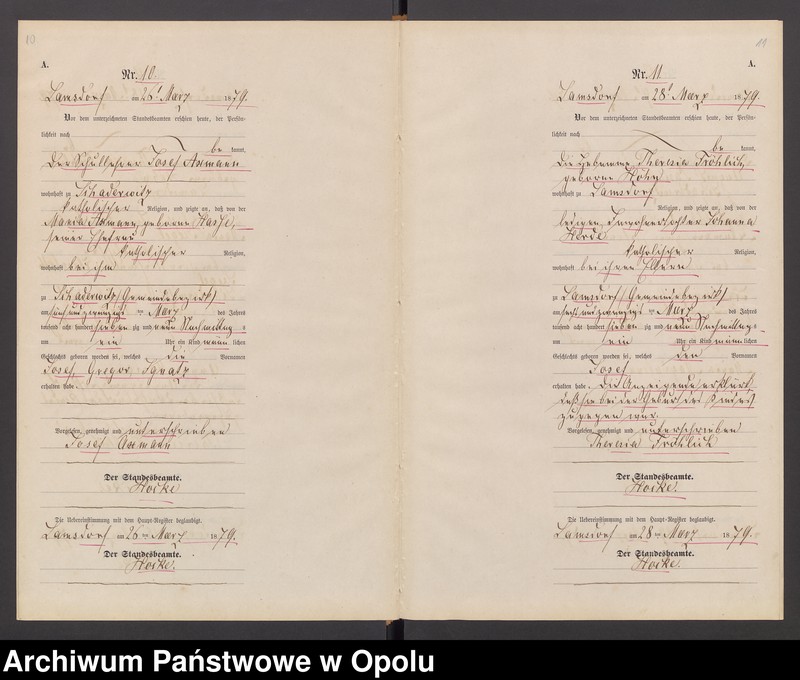 10
A.
Nr. 10.
Lamsdorf am 26t März 1879.
Vor dem unterzeichneten Standesbeamten erschien heute, der Persön-
lichkeit nach
be kannt,
Der Schullehrer Josef Assmann
wohnhaft zu Schaderwitz
katholischer Religion, und zeigte an, daß von der
Maria Assmann, geborne
seiner Ehefrau
katholischer Religion,
wohnhaft bei ihm
zu Schaderwitz (Gemeindebezirk)
am März des Jahres
tausend acht hundert sieben zig und neun Nachmittag s
um ein Uhr ein Kind männ lichen
Geschlechts geboren worden sei, welches die Vornamen
Josef, Gregor, Ignatz
erhalten habe.
Vorgelesen, genehmigt und unterschrieben
Josef Assmann
Der Standesbeamte.
Hocke
Die Uebereinstimmung mit dem Haupt-Register beglaubigt.
Lamsdorf am 26ten März 1879.
Der Standesbeamte.
Hocke.
A.
Nr. 11
Lamsdorf am 28t März 1879.
Vor dem unterzeichneten Standesbeamten erschien heute, der Persön-
lichkeit nach
be kannt,
Die Hebamme Theresia Fröhlich,
geborne
wohnhaft zu Lamsdorf
Religion, und zeigte an, daß von der
ledigen Johanna
katholischer Religion,
wohnhaft bei ihren Eltern
zu Lamsdorf (Gemeindebezirk)
am sechs und zwanzigsten März des Jahres
tausend acht hundert sieben zig und neun Nachmittags
um ein Uhr ein Kind männ lichen
Geschlechts geboren worden sei, welches den Vornamen
Josef
erhalten habe. Die Anzeigende erklärt,
daß sie bei der Geburt des Kindes
zugegen war.
Vorgelesen, genehmigt und unterschrieben
Theresia Fröhlich
Der Standesbeamte.
Hocke.
Die Uebereinstimmung mit dem Haupt-Register beglaubigt.
Lamsdorf am 28ten März 1879.
Der Standesbeamte.
Hocke.
Archiwum Państwowe w Opolu